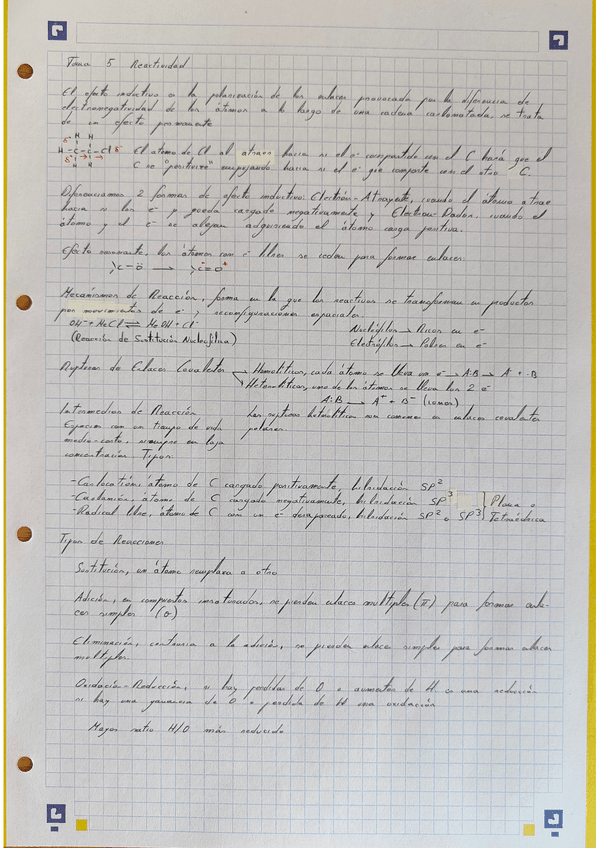 Tema 5 Reactividad
El efecto inductivo es la polarización de los enlaces provocada por la diferencia de
electronegatividad de los átomos a lo largo de una cadena carbonatada, se trata
de un efecto permanente
H H
H-C-C-Cl δ⁻ El atomo de Cl al atraer hacia si el e⁻ compartido con el C hará que el
H H C se "positivice" empujando hacia si el e⁻ que comparte con el otro C.
Diferenciamos 2 formas de efecto inductivo: Electrón-Atrayente, cuando el átomo atrae
hacia si los e⁻ y queda cargado negativamente y Electron-Dador, cuando el
átomo y el e⁻ se alejan adquiriendo el átomo carga positiva.
Efecto resonante, los átomos con e⁻ libres se ceden para formar enlaces.
C-Ö → C=O⁺
Mecanismos de Reacción, forma en la que los reactivos se transforman en productos
por movimientos de e⁻ y reconfiguraciones espaciales.
OH⁻ + MeCl ⇌ MeOH + Cl⁻ Nucleófilos → Ricos en e⁻
(Reacción de Sustitución Nucleofílica) Electrófilos → Pobres en e⁻
Rupturas de Enlaces Covalentes → Homolíticas, cada átomo se lleva un e⁻ → A:B → A· + ·B
→ Heterolíticas, uno de los átomos se lleva los 2 e⁻
A:B → A⁺ + B⁻ (iones)
Intermedios de Reacción Las rupturas heterolíticas son comunes en enlaces covalentes
Especies con un tiempo de vida polares.
medio corto, siempre en baja
concentración. Tipos:
-Carbocatión, átomo de C cargado positivamente, hibridación SP²
-Carbanión, átomo de C cargado negativamente, hibridación SP³ } Plana o
-Radical libre, átomo de C con un e⁻ desapareado, hibridación SP² o SP³ } Tetraédrica
Tipos de Reacciones
Sustitución, un átomo remplaza a otro
Adición, en compuestos insaturados, se pierden enlaces multiples (π) para formar enla-
ces simples (σ)
Eliminación, contraria a la adición, se pierden enlaces simples para formar enlaces
multiples.
Oxidación-Reducción, si hay perdidas de O o aumentos de H es una reducción
si hay una ganancia de O o perdida de H una oxidación
Mayor ratio H/O más reducido